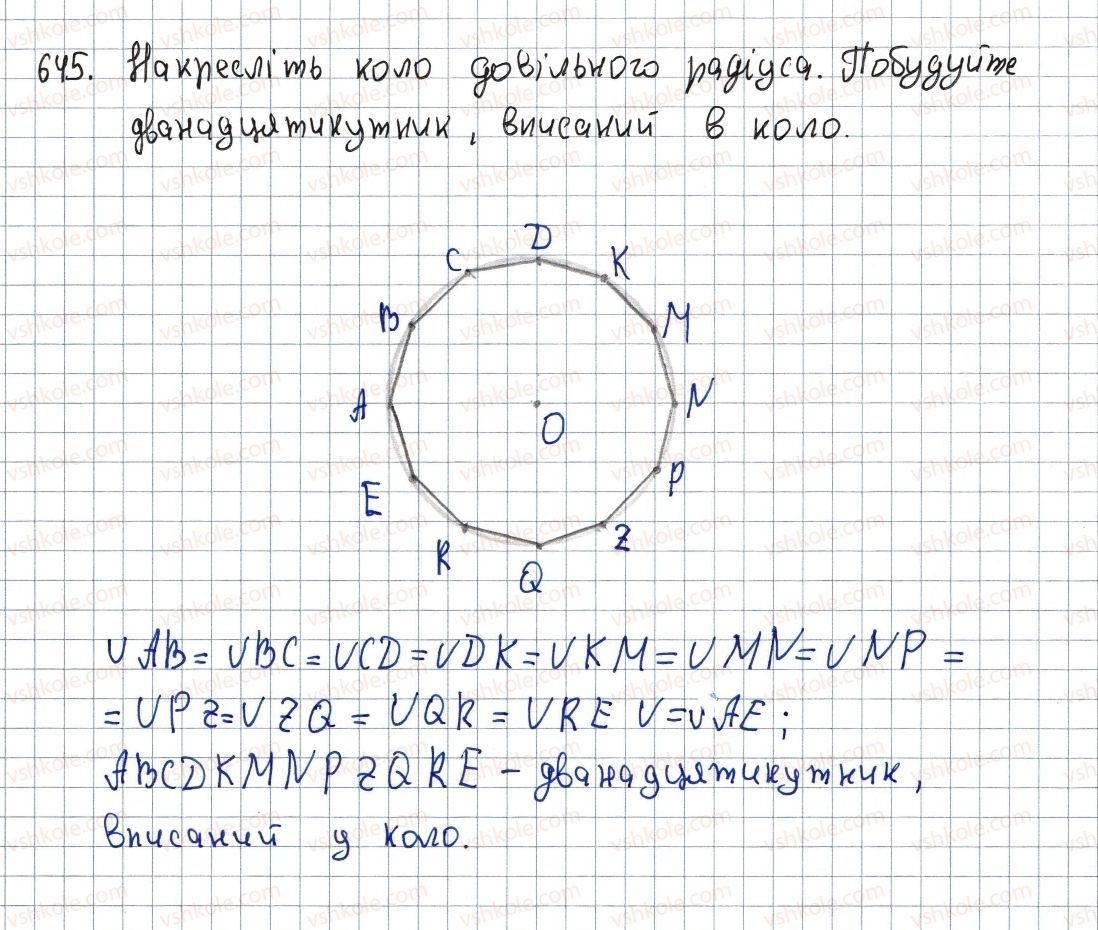 645. Накресліть коло довільного радіуса. Побудуйте
дванадцятикутник, вписаний в коло.
D
C
K
B
M
A
N
O
E
P
R
Z
Q
∪AB = ∪BC = ∪CD = ∪DK = ∪KM = ∪MN = ∪NP =
= ∪PZ = ∪ZQ = ∪QR = ∪RE ∪ = ∪AE ;
ABCDKMNPZQRE – дванадцятикутник,
вписаний у коло.
vshkole.com